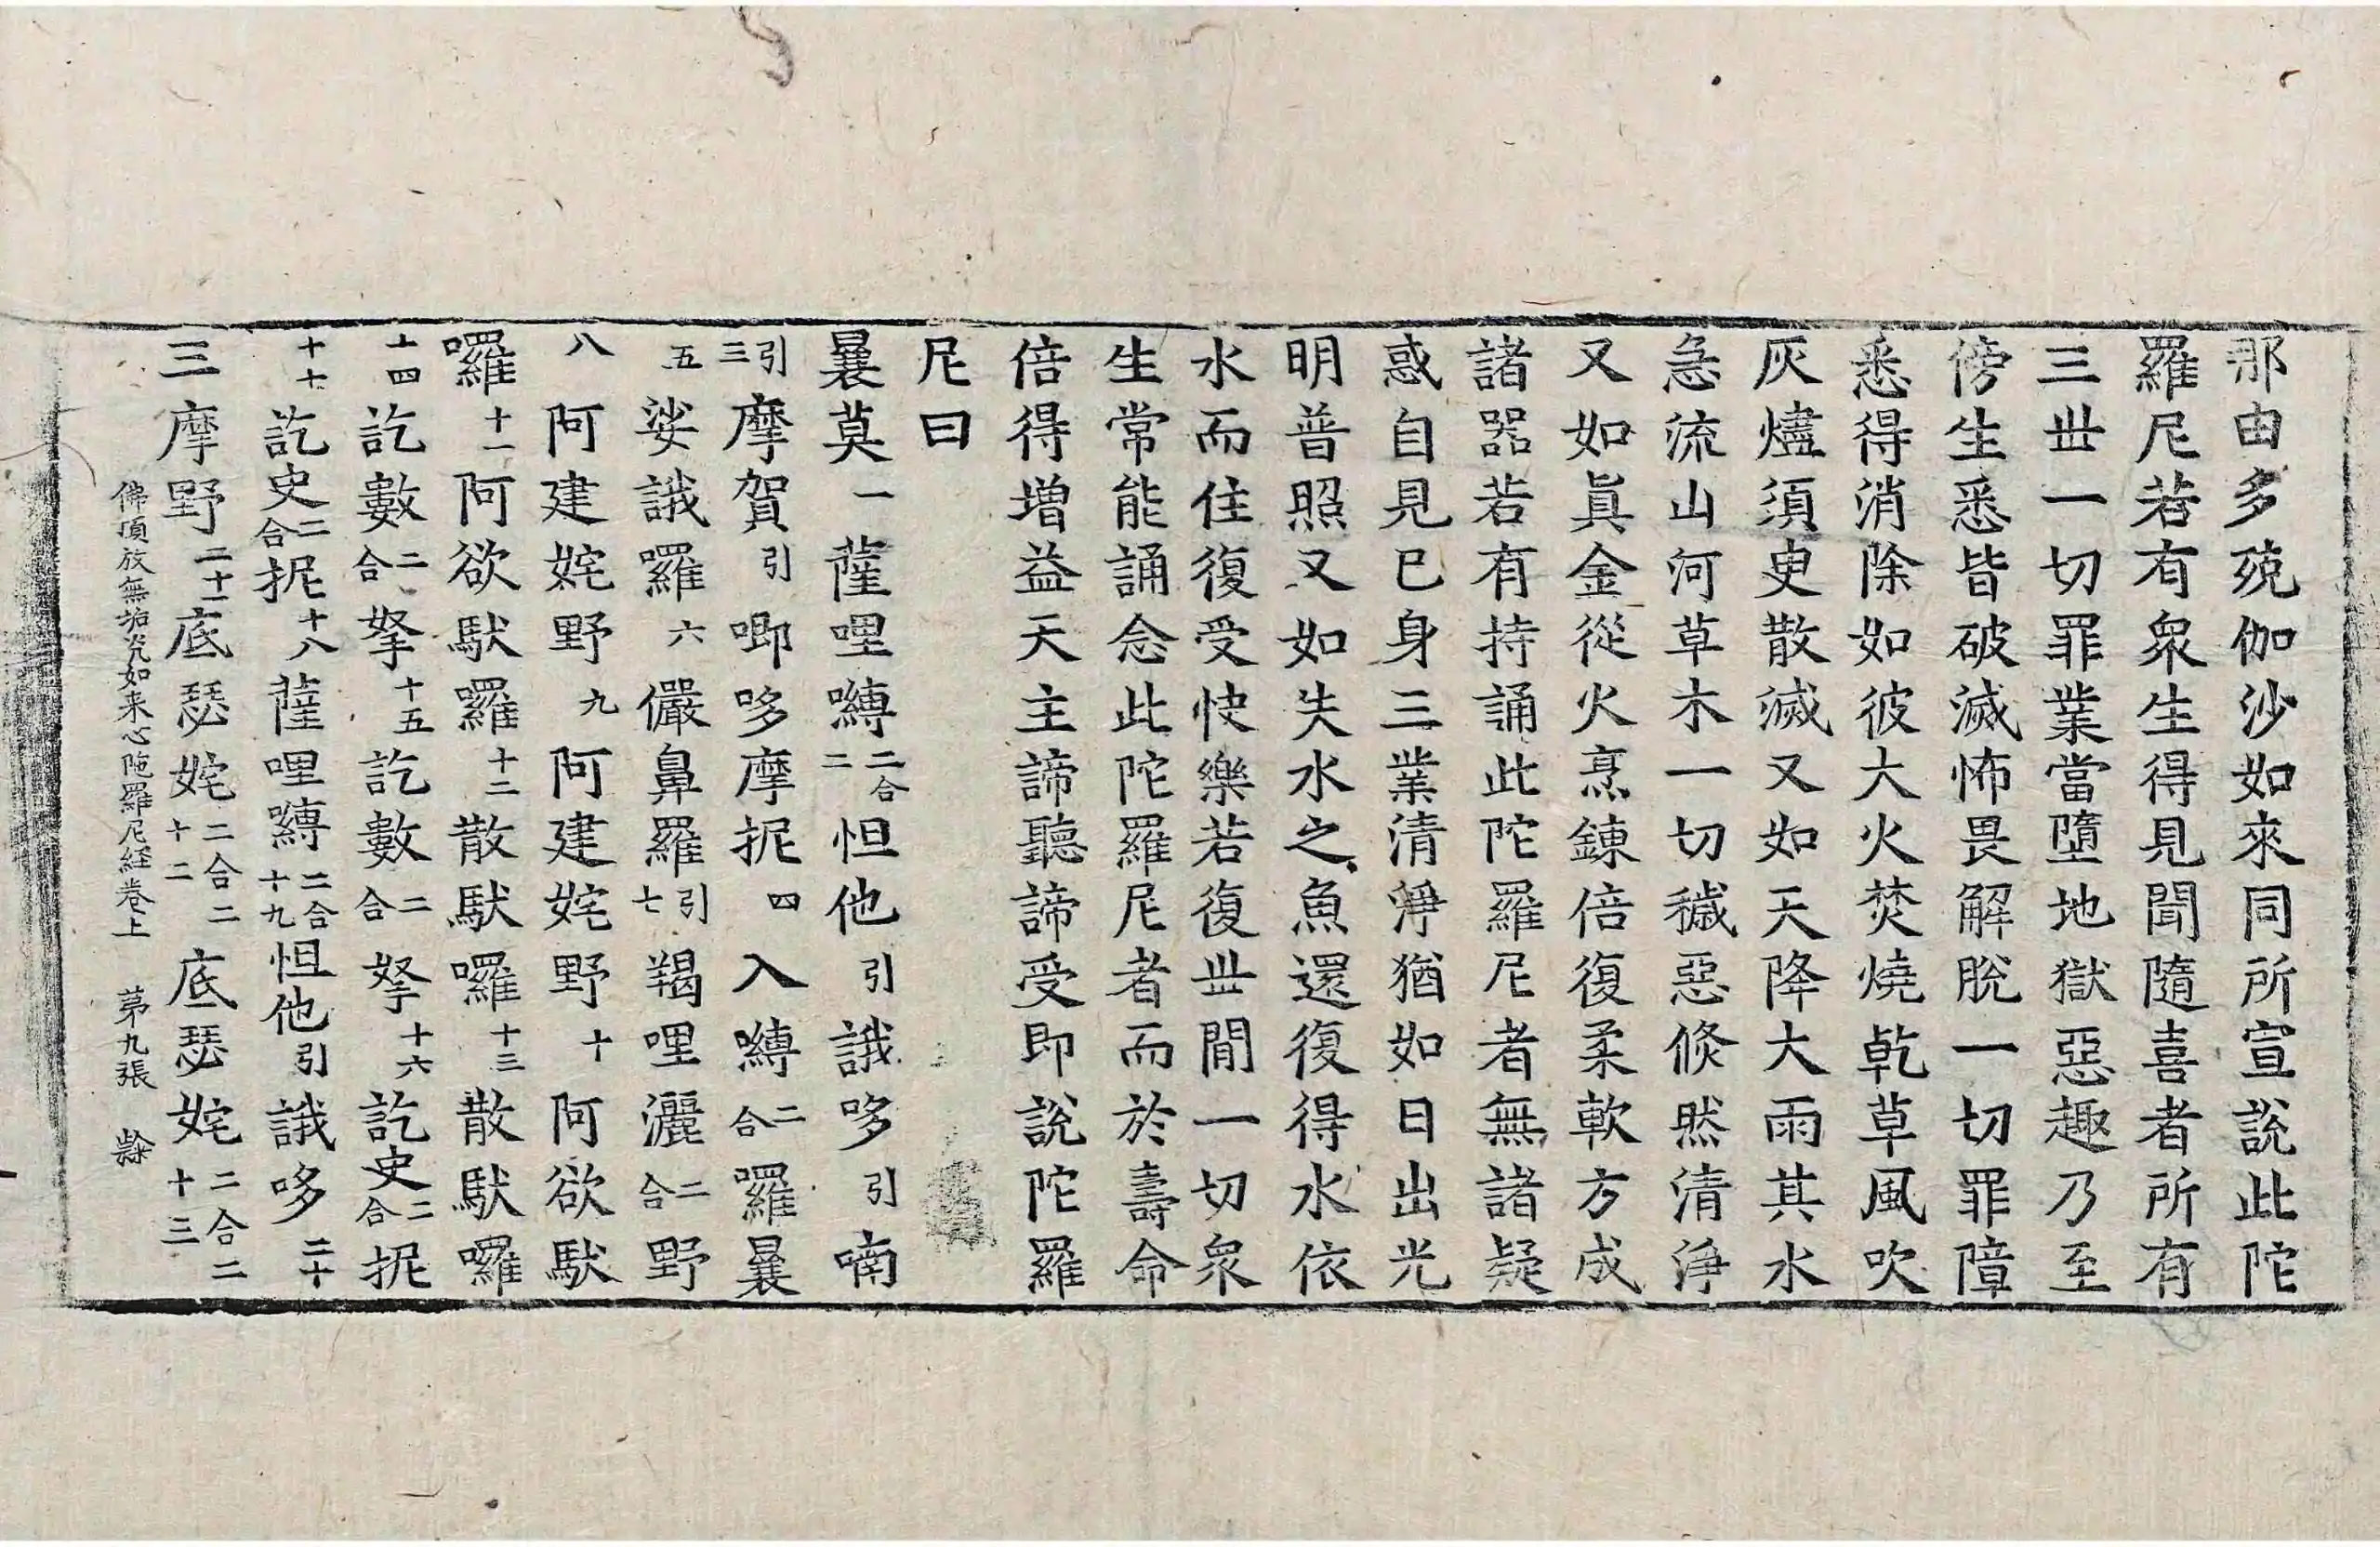 那由多殑伽沙如來同所宣說此陀
羅尼若有衆生得見聞隨喜者所有
三世一切罪業當墮地獄惡趣乃至
傍生悉皆破滅怖畏解脫一切罪障
悉得消除如彼大火焚燒乾草風吹
灰燼須臾散滅又如天降大雨其水
急流山河草木一切穢惡倐然清淨
又如眞金從火烹鍊倍復柔軟方成
諸器若有持誦此陀羅尼者無諸疑
惑自見己身三業清淨猶如日出光
明普照又如失水之魚還復得水依
水而住復受快樂若復世間一切衆
生常能誦念此陀羅尼者而於壽命
倍得增益天主諦聽諦受即說陀羅
尼曰
曩莫一薩哩嚩二合二怛他引誐哆引喃
引三摩賀引唧哆摩抳四入嚩二合囉曩
五娑誐囉六儼鼻羅引七羯哩灑二合野
八阿建姹野九阿建姹野十阿欲馱
囉十一阿欲馱羅十二散馱囉十三散馱囉
十四訖數二合拏十五訖數二合拏十六訖史二合抳
十七訖史二合抳十八薩哩嚩二合十九怛他引誐哆二十
三摩野二十一底瑟姹二合二十二底瑟姹二合二十三
佛頂放無垢光如来心陁羅尼経卷上 苐九張